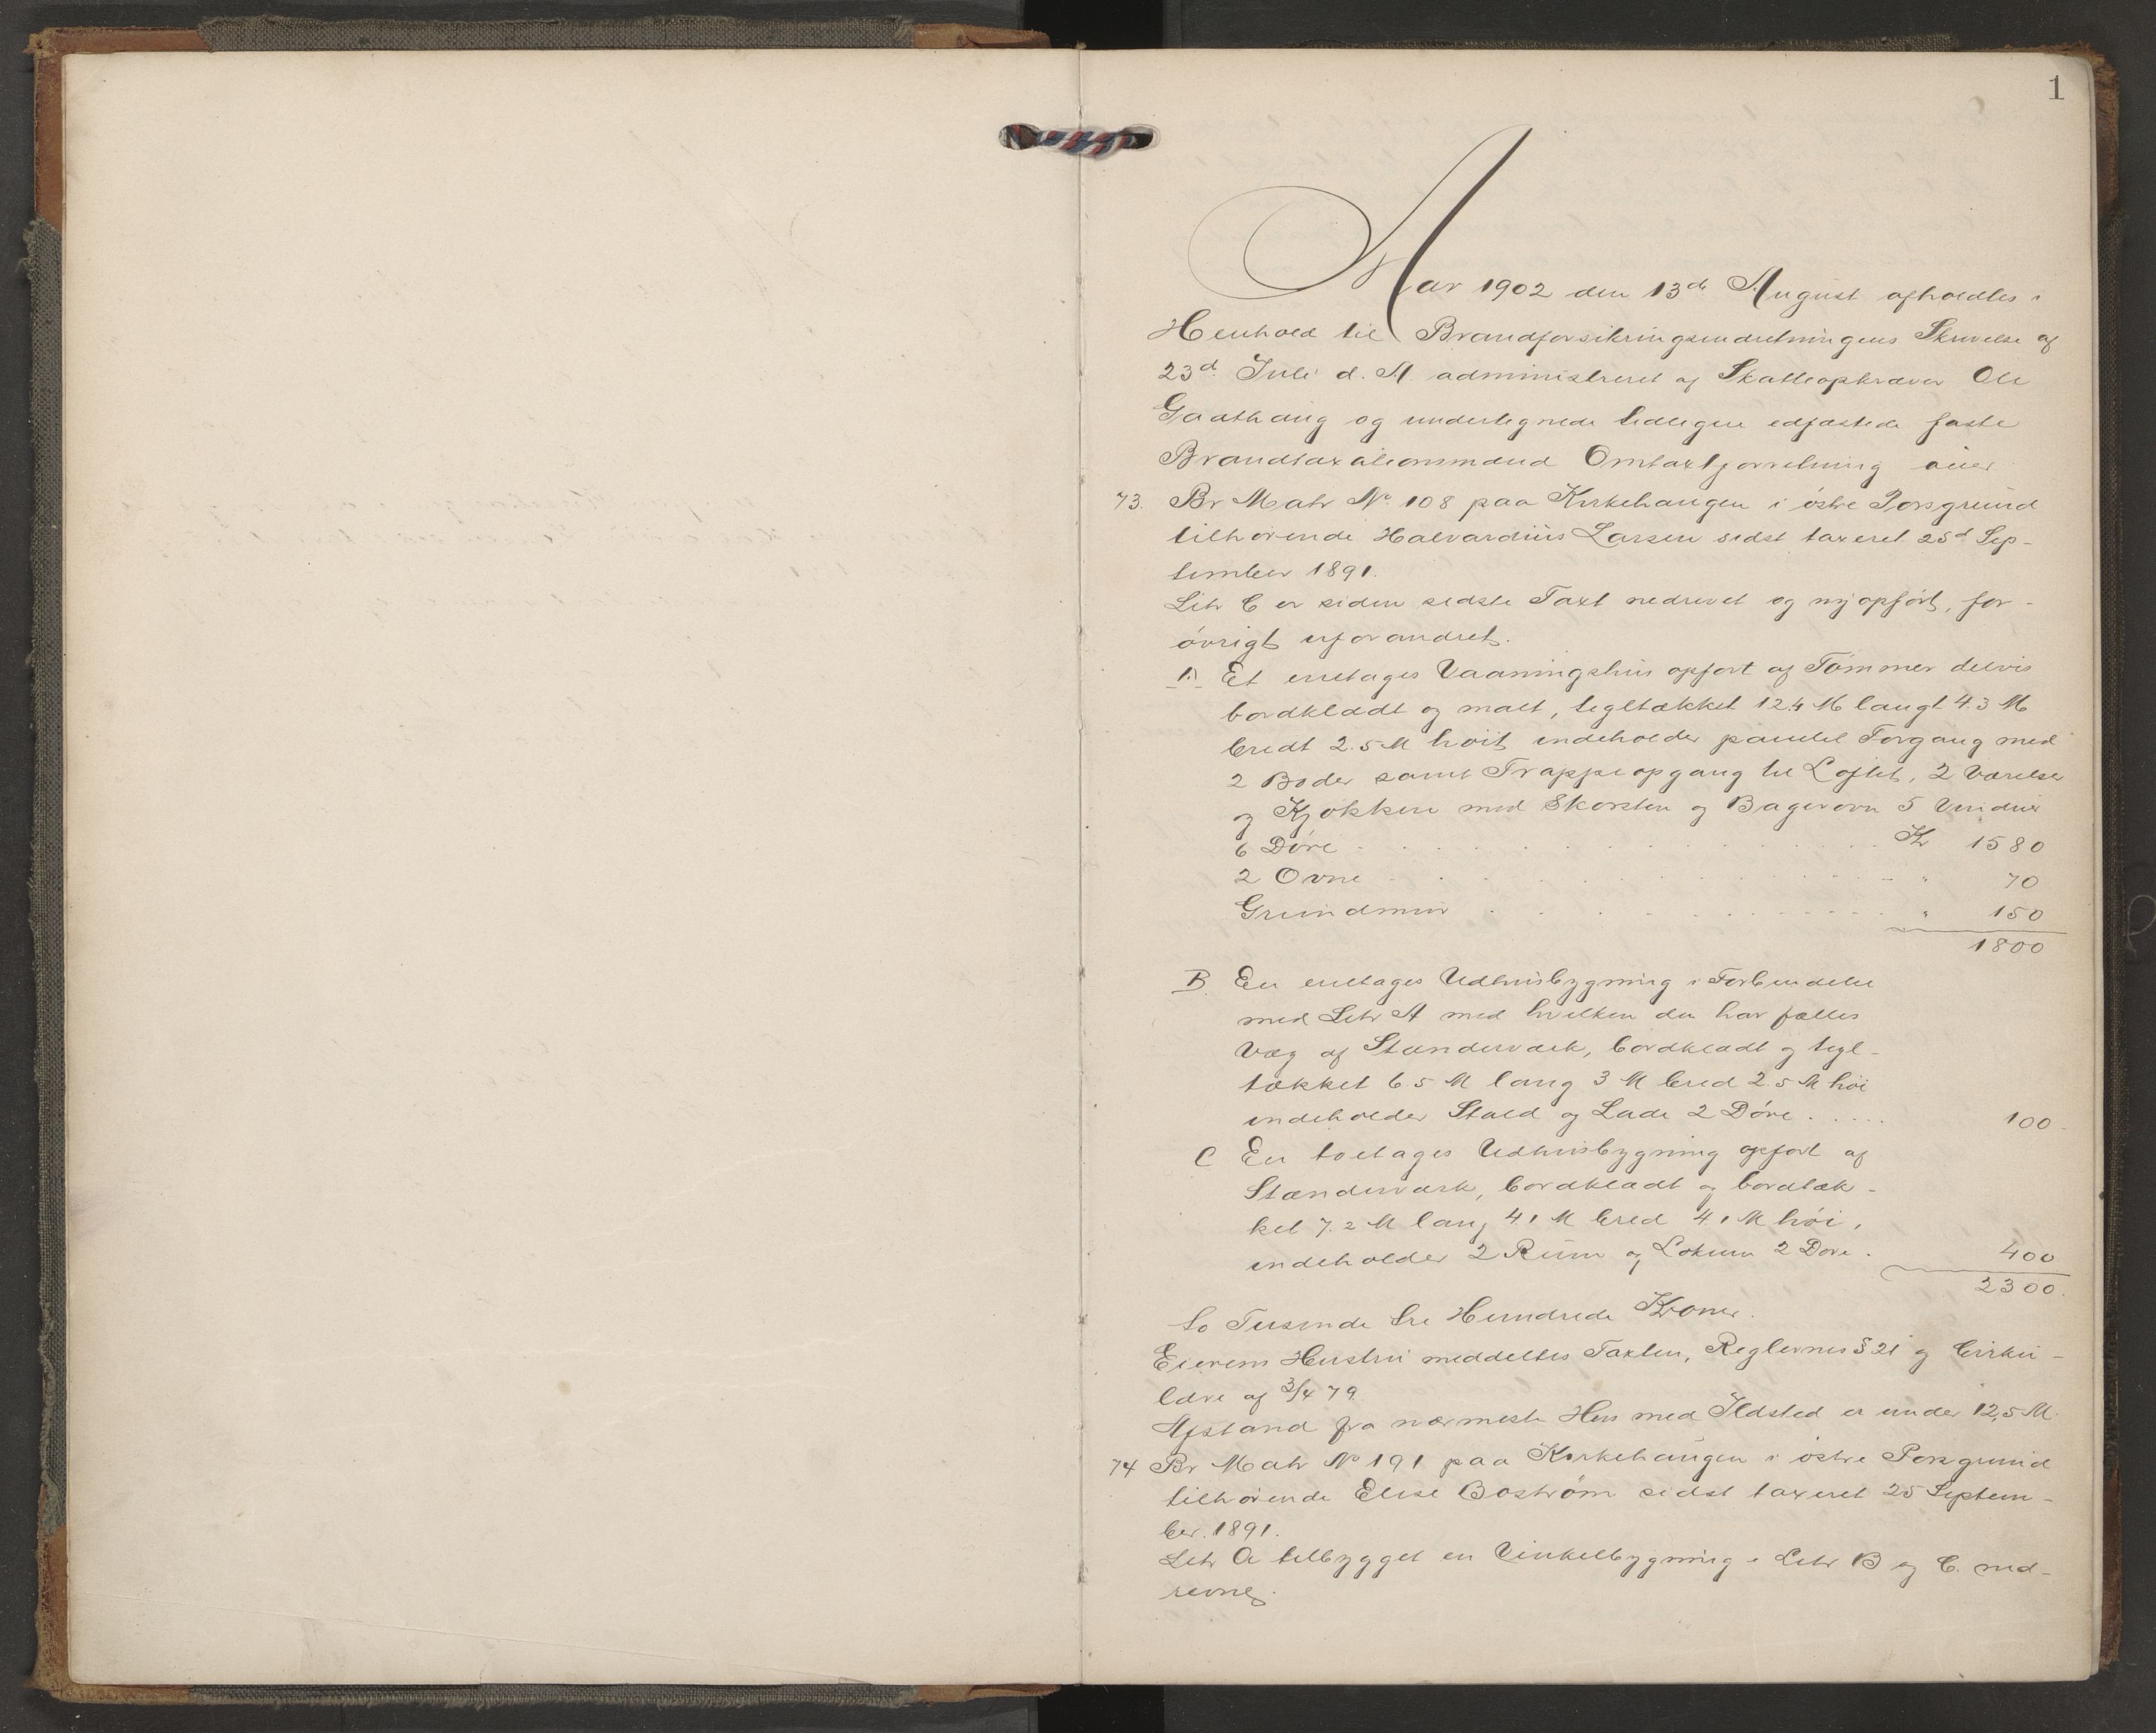 1
Aar 1902 den 13de August afholdtes i
Henhold til Brandforsikringsindretningens Skrivelse af
23d Juli d. A. administreret af Skatteopkræver Ole
Gaathaug og undertegnede tidligere edfæstede faste
Brandtaxationsmænd Omtaxtforretning over
73. Br Matr No 108 paa Kirkehaugen i østre Porsgrund
tilhørende Halvardius Larsen sidst taxeret 25d Sep-
tember 1891.
Litr C er siden sidste Taxt nedrevet og nyopført, for-
øvrigt uforandret.
Et enetages Vaaningshus opført af Tømmer delvis
bordklædt og malt, tegltækket 12.4 M langt 4.3 M
bredt 2.5 M høit indeholder panelet Forgang med
2 Boder samt Trappeopgang til Loftet, 2 Værelser
og Kjøkken med Skorsten og Bagerovn 5 Vinduer
6 Døre . . . . Kr 1580
2 Ovne . . . . " 70
Grundmur . . . . " 150
1800
B. En enetages Udhusbygning i Forbindelse
med Litr A med hvilken den har fælles
Væg af Stænderværk, bordklædt og tegl-
tækket 6.5 M lang 3 M bred 2.5 M høi
indeholder Stald og Lade 2 Døre . . . . . 100
C En toetages Udhusbygning opført af
Stænderværk, bordklædt og bordtæk-
ket 7.2 M lang 4.1 M bred 4.1 M høi,
indeholder 2 Rum og Lokum 2 Døre. 400
2300.
to Tusinde tre Hundrede Kroner.
Eierens Hustru meddeltes Taxten, Reglernes § 21 og Cirku-
lære af 3/4 79.
Afstand fra nærmeste Hus med Ildsted er under 12,5 M.
74 Br Matr No 191 paa Kirkehaugen i østre Porsgrund
tilhørende Elise Boström sidst taxeret 25 Septem-
ber. 1891.
Litr A tilbygget en Vinkelbygning. Litr B og C. ned-
revne.